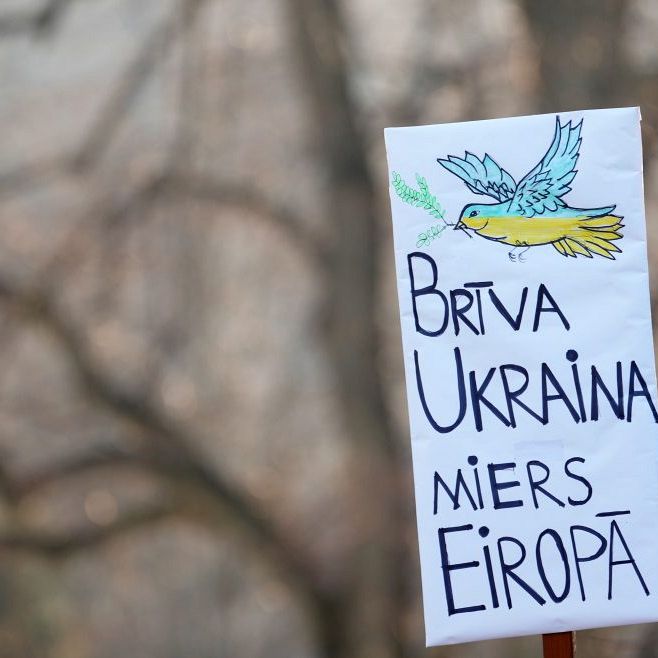 BRĪVA
UKRAINA
MIERS
EIROPĀ